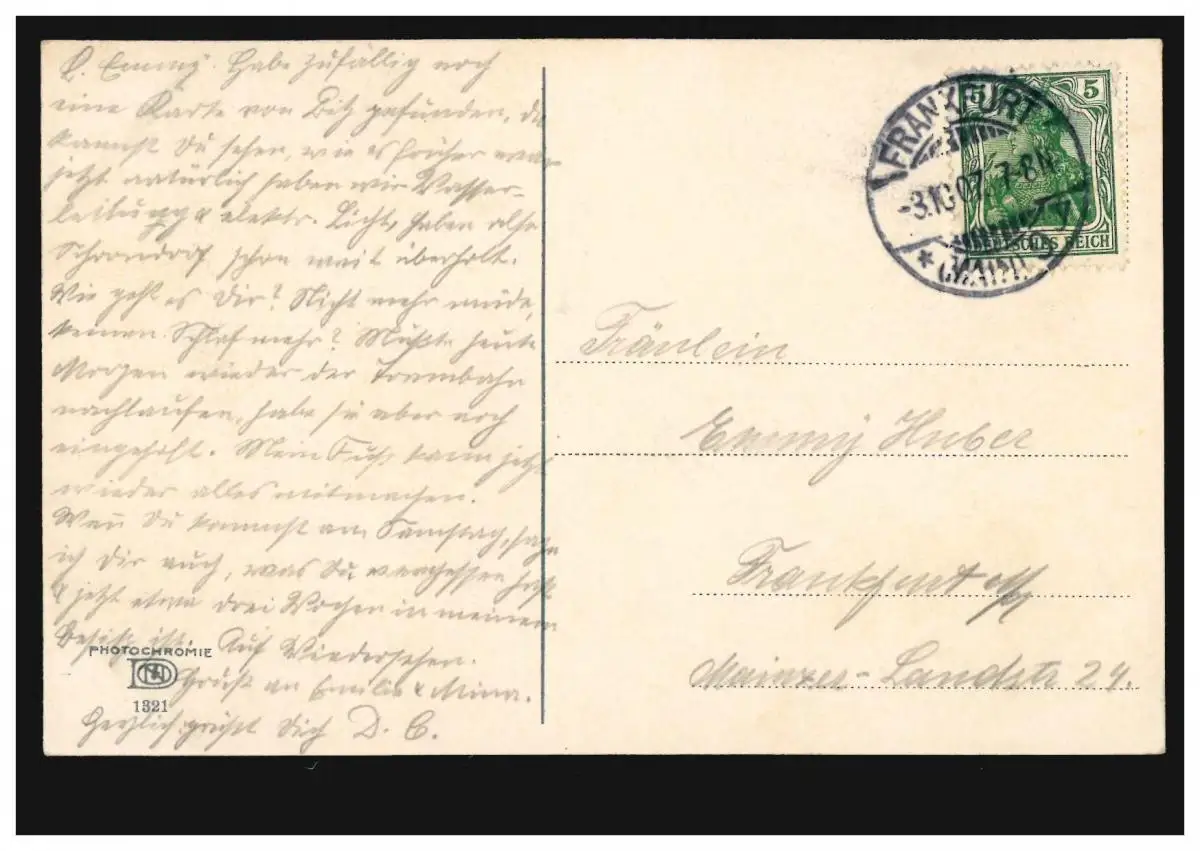 L. Emmy. Habe zufällig noch
eine Karte von Bitz gefunden, da
kannst Du sehen, wie es früher war
jetzt natürlich haben wir Wasser-
leitung & elektr. Licht, haben also
Schorndorf schon weit überholt.
Wie geht es Dir? Nicht mehr müde,
keinen Schlaf mehr? Mußte heute
Morgen wieder der Trambahn
nachlaufen, habe sie aber noch
eingeholt. Mein Fuß kann jetzt
wieder alles mitmachen.
Wen̄ Du kommst am Samstag, sage
ich Dir auch, was Du vergessen hast
& jetzt etwa drei Wochen in meinem
Besitz ist. Auf Wiedersehen.
Gruß an Emilie & Mina.
Herzlich grüßt Dich D. C.
PHOTOCHROMIE
1321
FRANKFURT
-3.10.07. 7-8N.
* (MAIN)
5 5
DEUTSCHES REICH
Fräulein
Emmy Huber
Frankfurt a/M
Mainzer-Landstr 24.